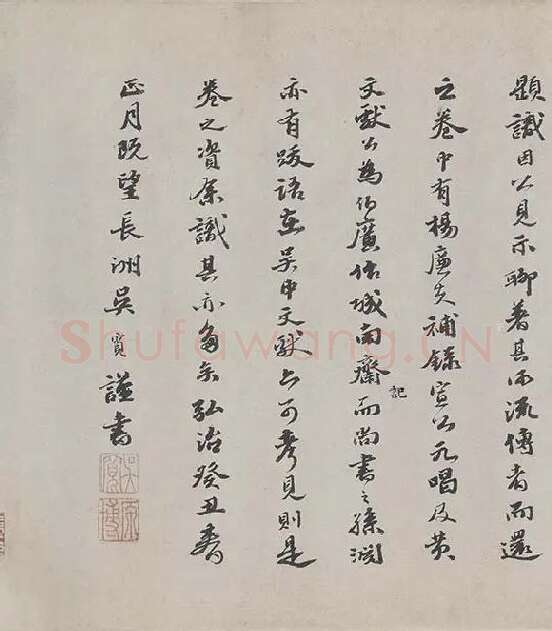 題識因以見示聊著其所流傳者而還
之卷中有楊廉夫補錄宣公元唱及黃
文獻公為伯廣伯城南齋記而尚書之孫潤
亦有跋語在吳中文獻亦可考見則是
卷之資余識其亦多矣弘治癸丑春
正月既望長洲吳寬謹書
吳寬
原博
Shufawang.CN